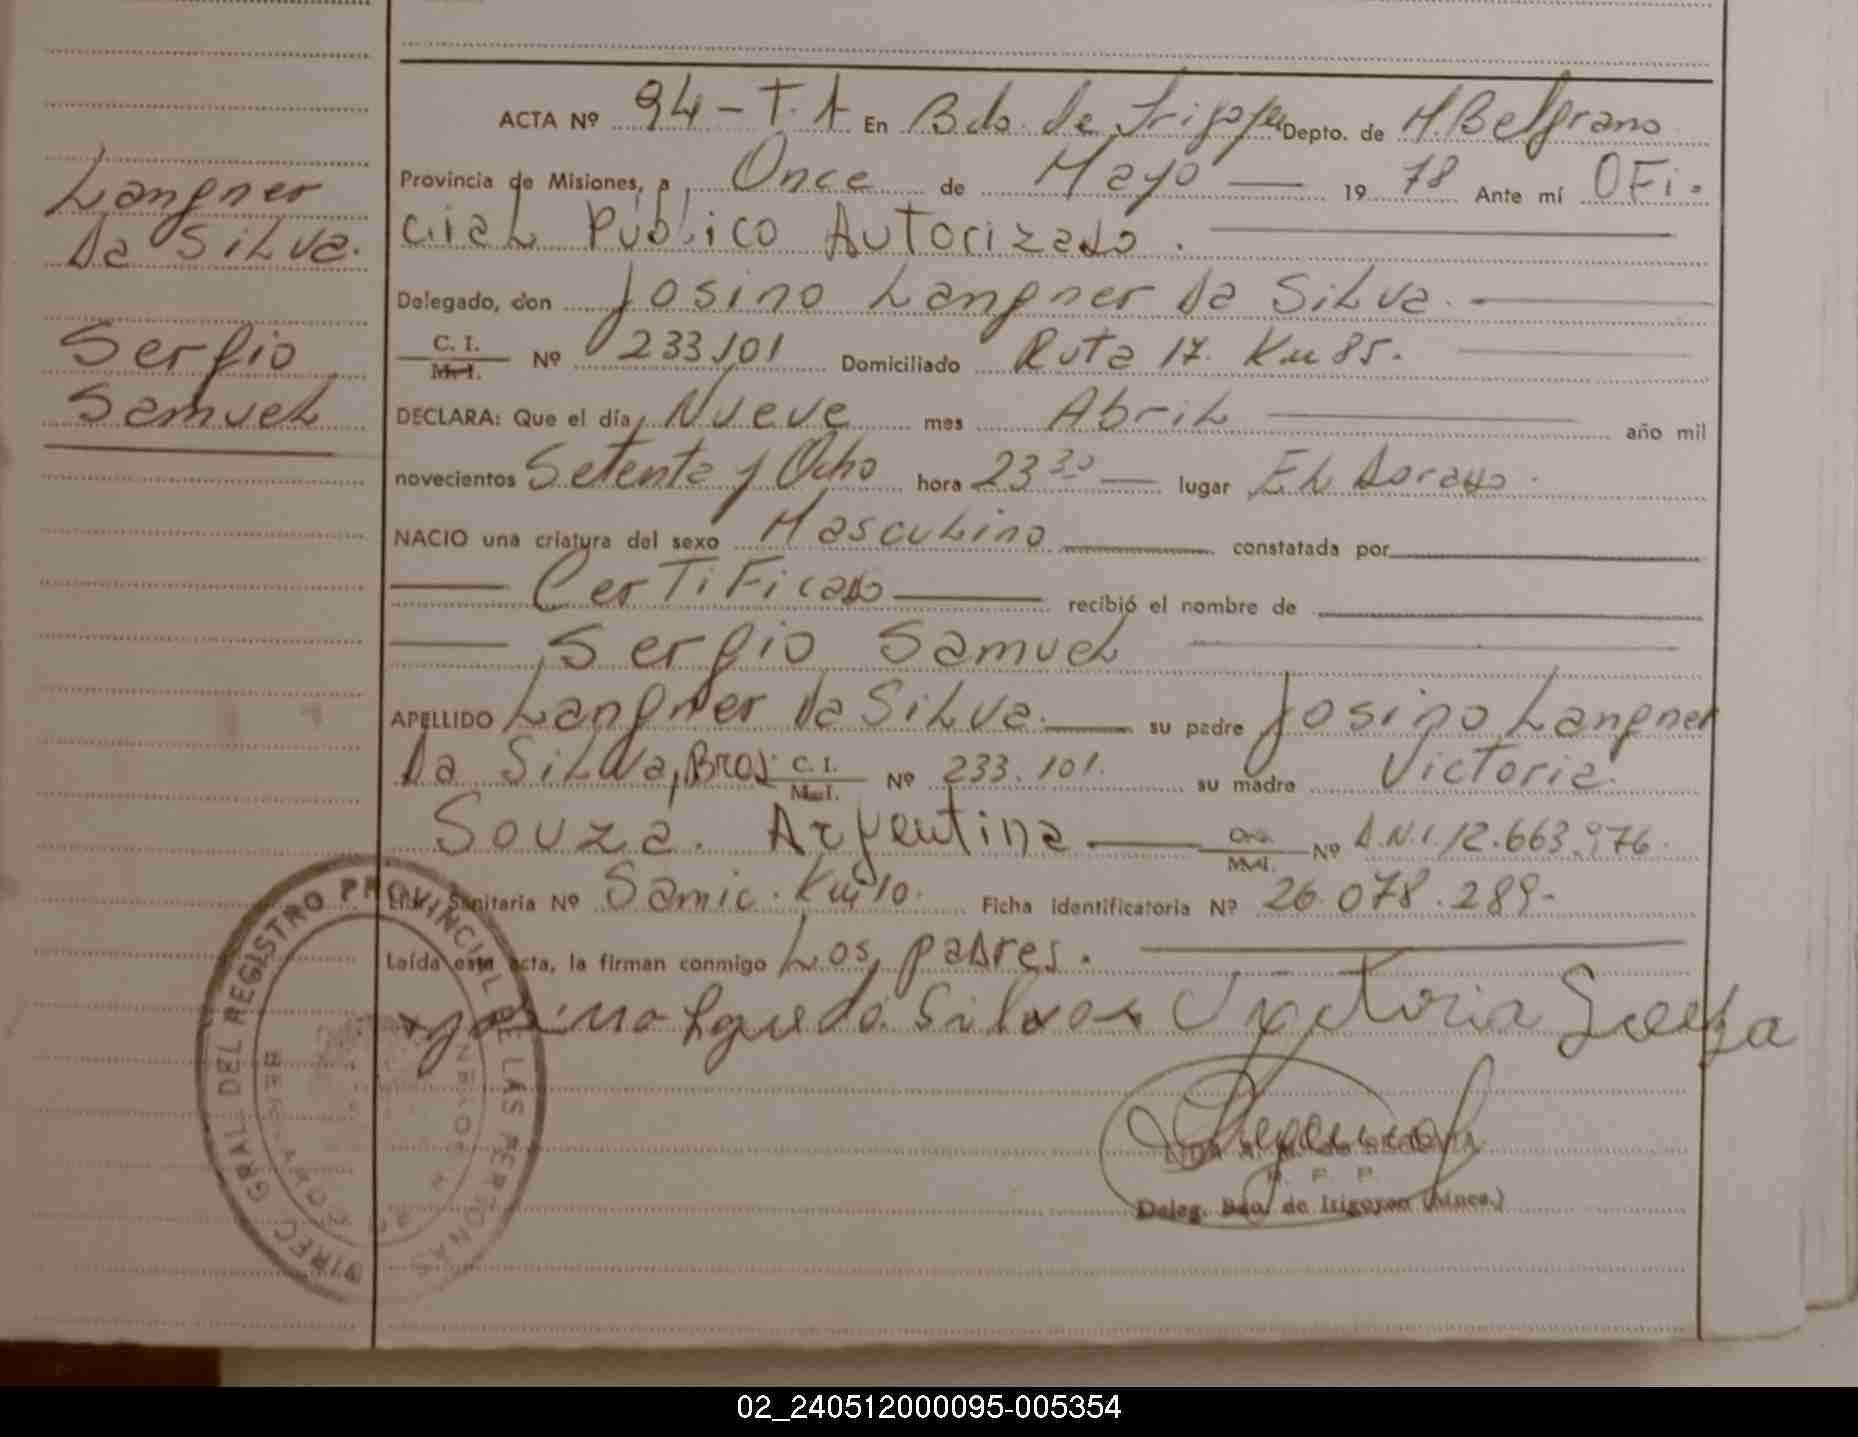 Langner
Da Silva.
Sergio
Samuel
ACTA Nº 94 - T. A En Bdo. de Irigoyen Depto. de M. Belgrano
Provincia de Misiones, a Once de Mayo 1978 Ante mí Ofi-
cial Público Autorizado.
Delegado, don Josino Langner Da Silva.
C. I. M. I. Nº 233.101 Domiciliado Ruta 17. Km 85.
DECLARA: Que el día, Nueve mes Abril año mil
novecientos Setenta y Ocho hora 23 30 lugar El Dorado.
NACIO una criatura del sexo Masculino constatada por
Certificado recibió el nombre de
Sergio Samuel
APELLIDO Langner Da Silva. su padre Josino Langner
Da Silva, Bras. C. I. M. I. Nº 233.101. su madre Victoria
Souza. Argentina M. I. Nº D.N.I. 12.663.976.
Sanitaria Nº Samic. Km 10. Ficha identificatoria Nº 26.078.289-
Leída esta acta, la firman conmigo Los padres.
Silva Victoria Souza
Deleg. Bdo. de Irigoyen (Mnes.)
DIREC. GRAL. DEL REGISTRO PROVINCIAL DE LAS PERSONAS
02_240512000095-005354